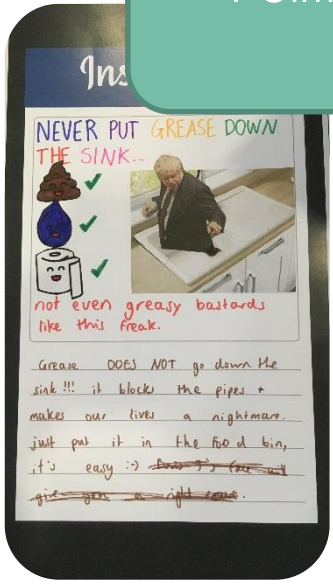 Ins
NEVER PUT GREASE DOWN
THE SINK...
not even greasy bastards
like this freak.
Grease DOES NOT go down the
sink!!! it blocks the pipes +
makes our lives a nightmare.
just put it in the food bin,
it's easy :-)
give you a right